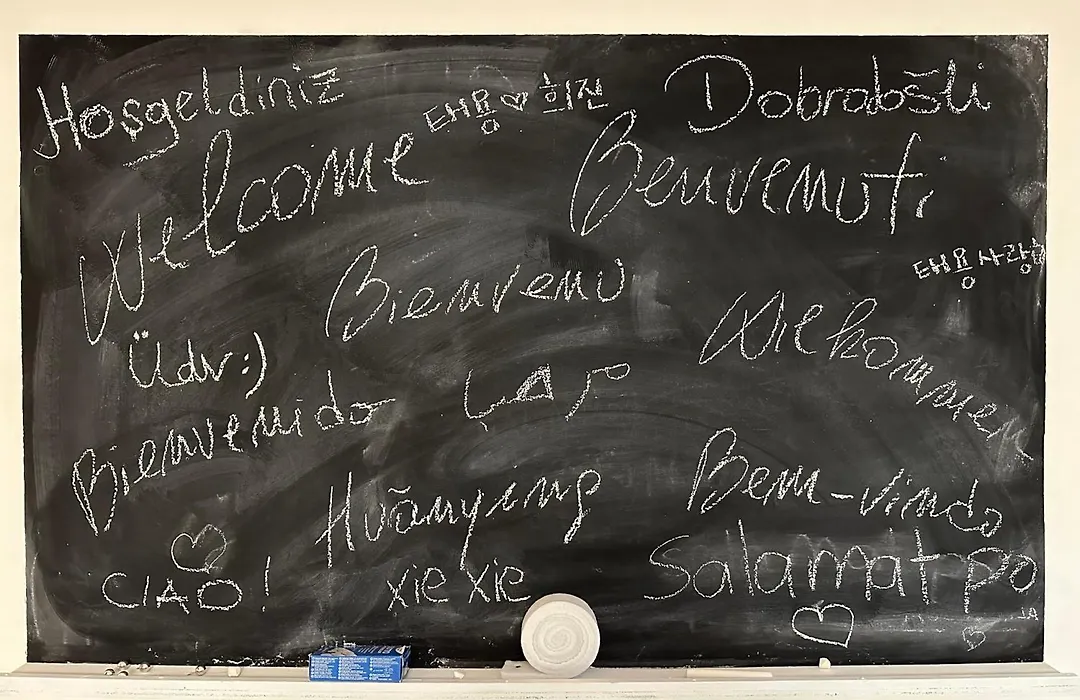 Hoşgeldiniz
태용♡희진
Dobrodošli
Welcome
Benvenuti
태용 사랑해
Bienvenu
Willkommen
Üdv:)
مرحبا
Bienvenido
Bem-vindo
Huānyíng
Salamat po
CIAO!
xie xie